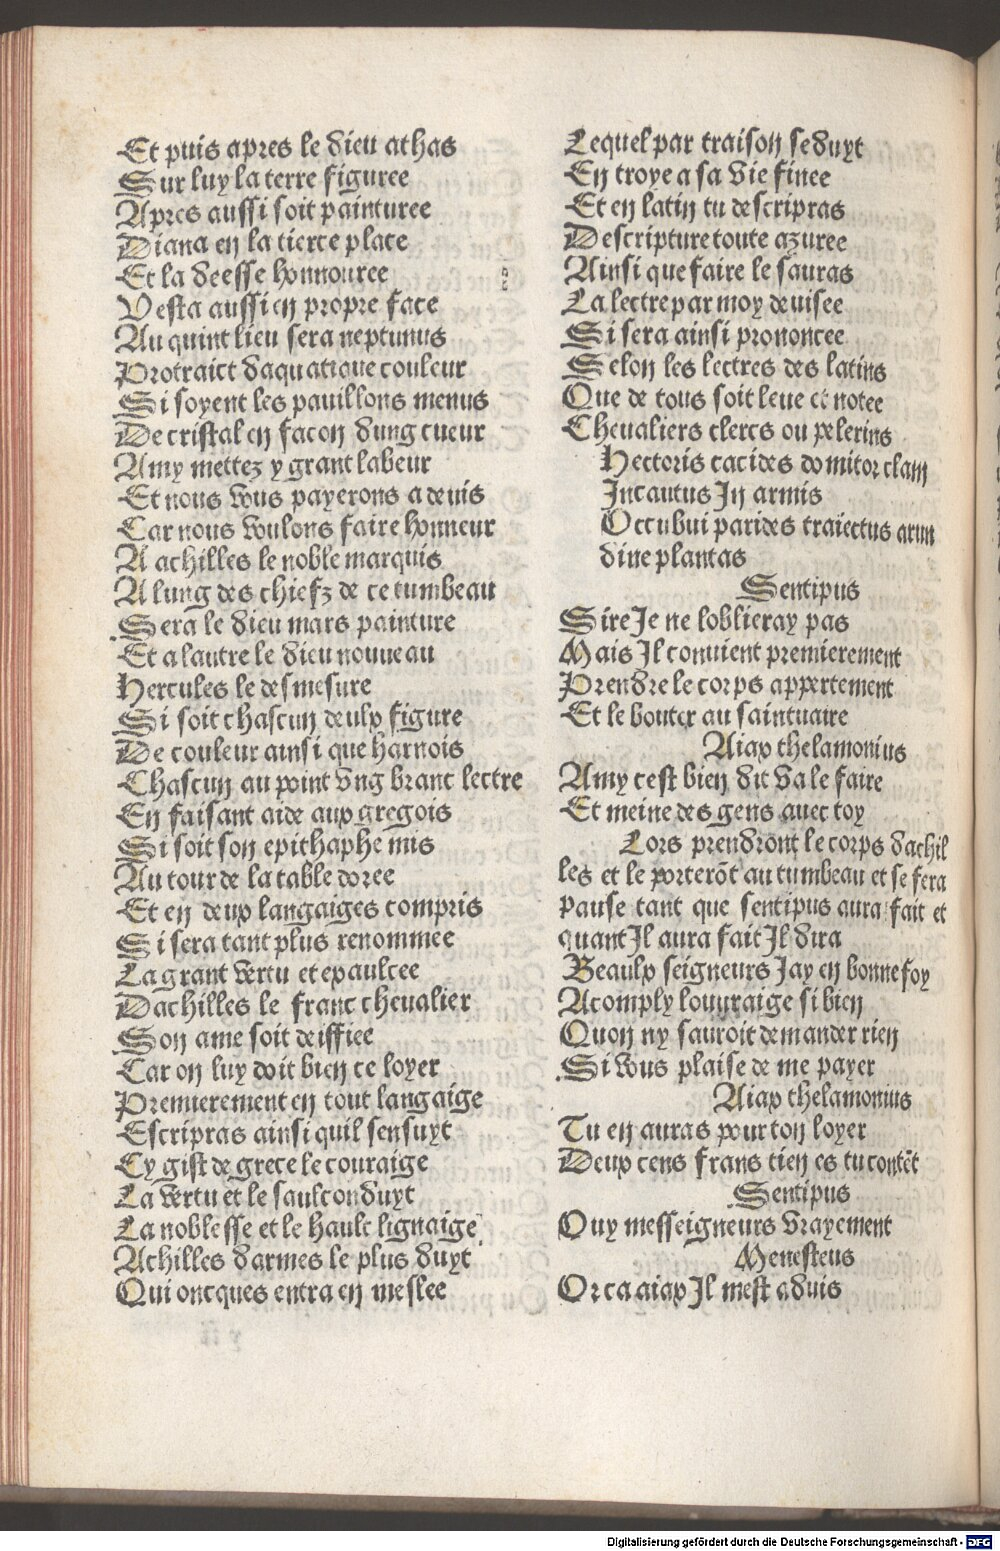 Et puis apres le dieu athas
Sur luy la terre figuree
Apres aussi soit painturee
Diana en la tierce place
Et la deesse honnouree
Vesta aussi en propre face
Au quint lieu sera neptunus
Protraict daquatique couleur
Si soyent les pauillons menus
De cristal en facon dung cueur
Amy mettez y grant labeur
Et nous vous payerons a deuis
Car nous voulons faire honneur
A achilles le noble marquis
A lung des chiefz de ce tumbeau
Sera le dieu mars painture
Et a lautre le dieu nouueau
Hercules le desmesure
Si soit chascun deulx figure
De couleur ainsi que harnois
Chascun au point vng branc lectre
En faisant aide aux gregois
Si soit son epithaphe mis
Au tour de la table doree
Et en deux langaiges compris
Si sera tant plus renommee
La grant vertu et exaulcee
Dachilles le franc cheualier
Son ame soit deiffiee
Car on luy doit bien ce loyer
Premierement en tout langaige
Escripras ainsi quil sensuyt
Cy gist de grece le couraige
La vertu et le saulconduyt
La noblesse et le hault lignaige
Achilles darmes le plus duyt
Qui oncques entra en meslee
Lequel par traison seduyt
En troye a sa vie finee
Et en latin tu descripras
Descripture toute azuree
Ainsi que faire le sauras
La lectre par moy deuisee
Si sera ainsi prononcee
Selon les lectres des latins
Que de tous soit leue et notee
Cheualiers clercs ou pelerins
Hectoris eacides domitor clam
Incautus In armis
Occubui parides traiectus arun
dine plantas
Sentipus
Sire Je ne loblieray pas
Mais Il conuient premierement
Prendre le corps appertement
Et le bouter au saintuaire
Aiax thelamonius
Amy cest bien dit va le faire
Et meine des gens auec toy
Lors prendront le corps dachil
les et le porterõt au tumbeau et se fera
pause tant que sentipus aura fait et
quant Il aura fait Il dira
Beaulx seigneurs Jay en bonne foy
Acomply louuraige si bien
Quon ny sauroit demander rien
Si vous plaise de me payer
Aiax thelamonius
Tu en auras pour ton loyer
Deux cens frans tien es tu contẽt
Sentipus
Ouy messeigneurs vrayement
Menesteus
Or ca aiax Il mest aduis
Digitalisierung gefördert durch die Deutsche Forschungsgemeinschaft - DFG